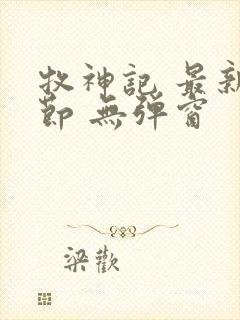 牧神記 最新
節 無彈窗
梁歡